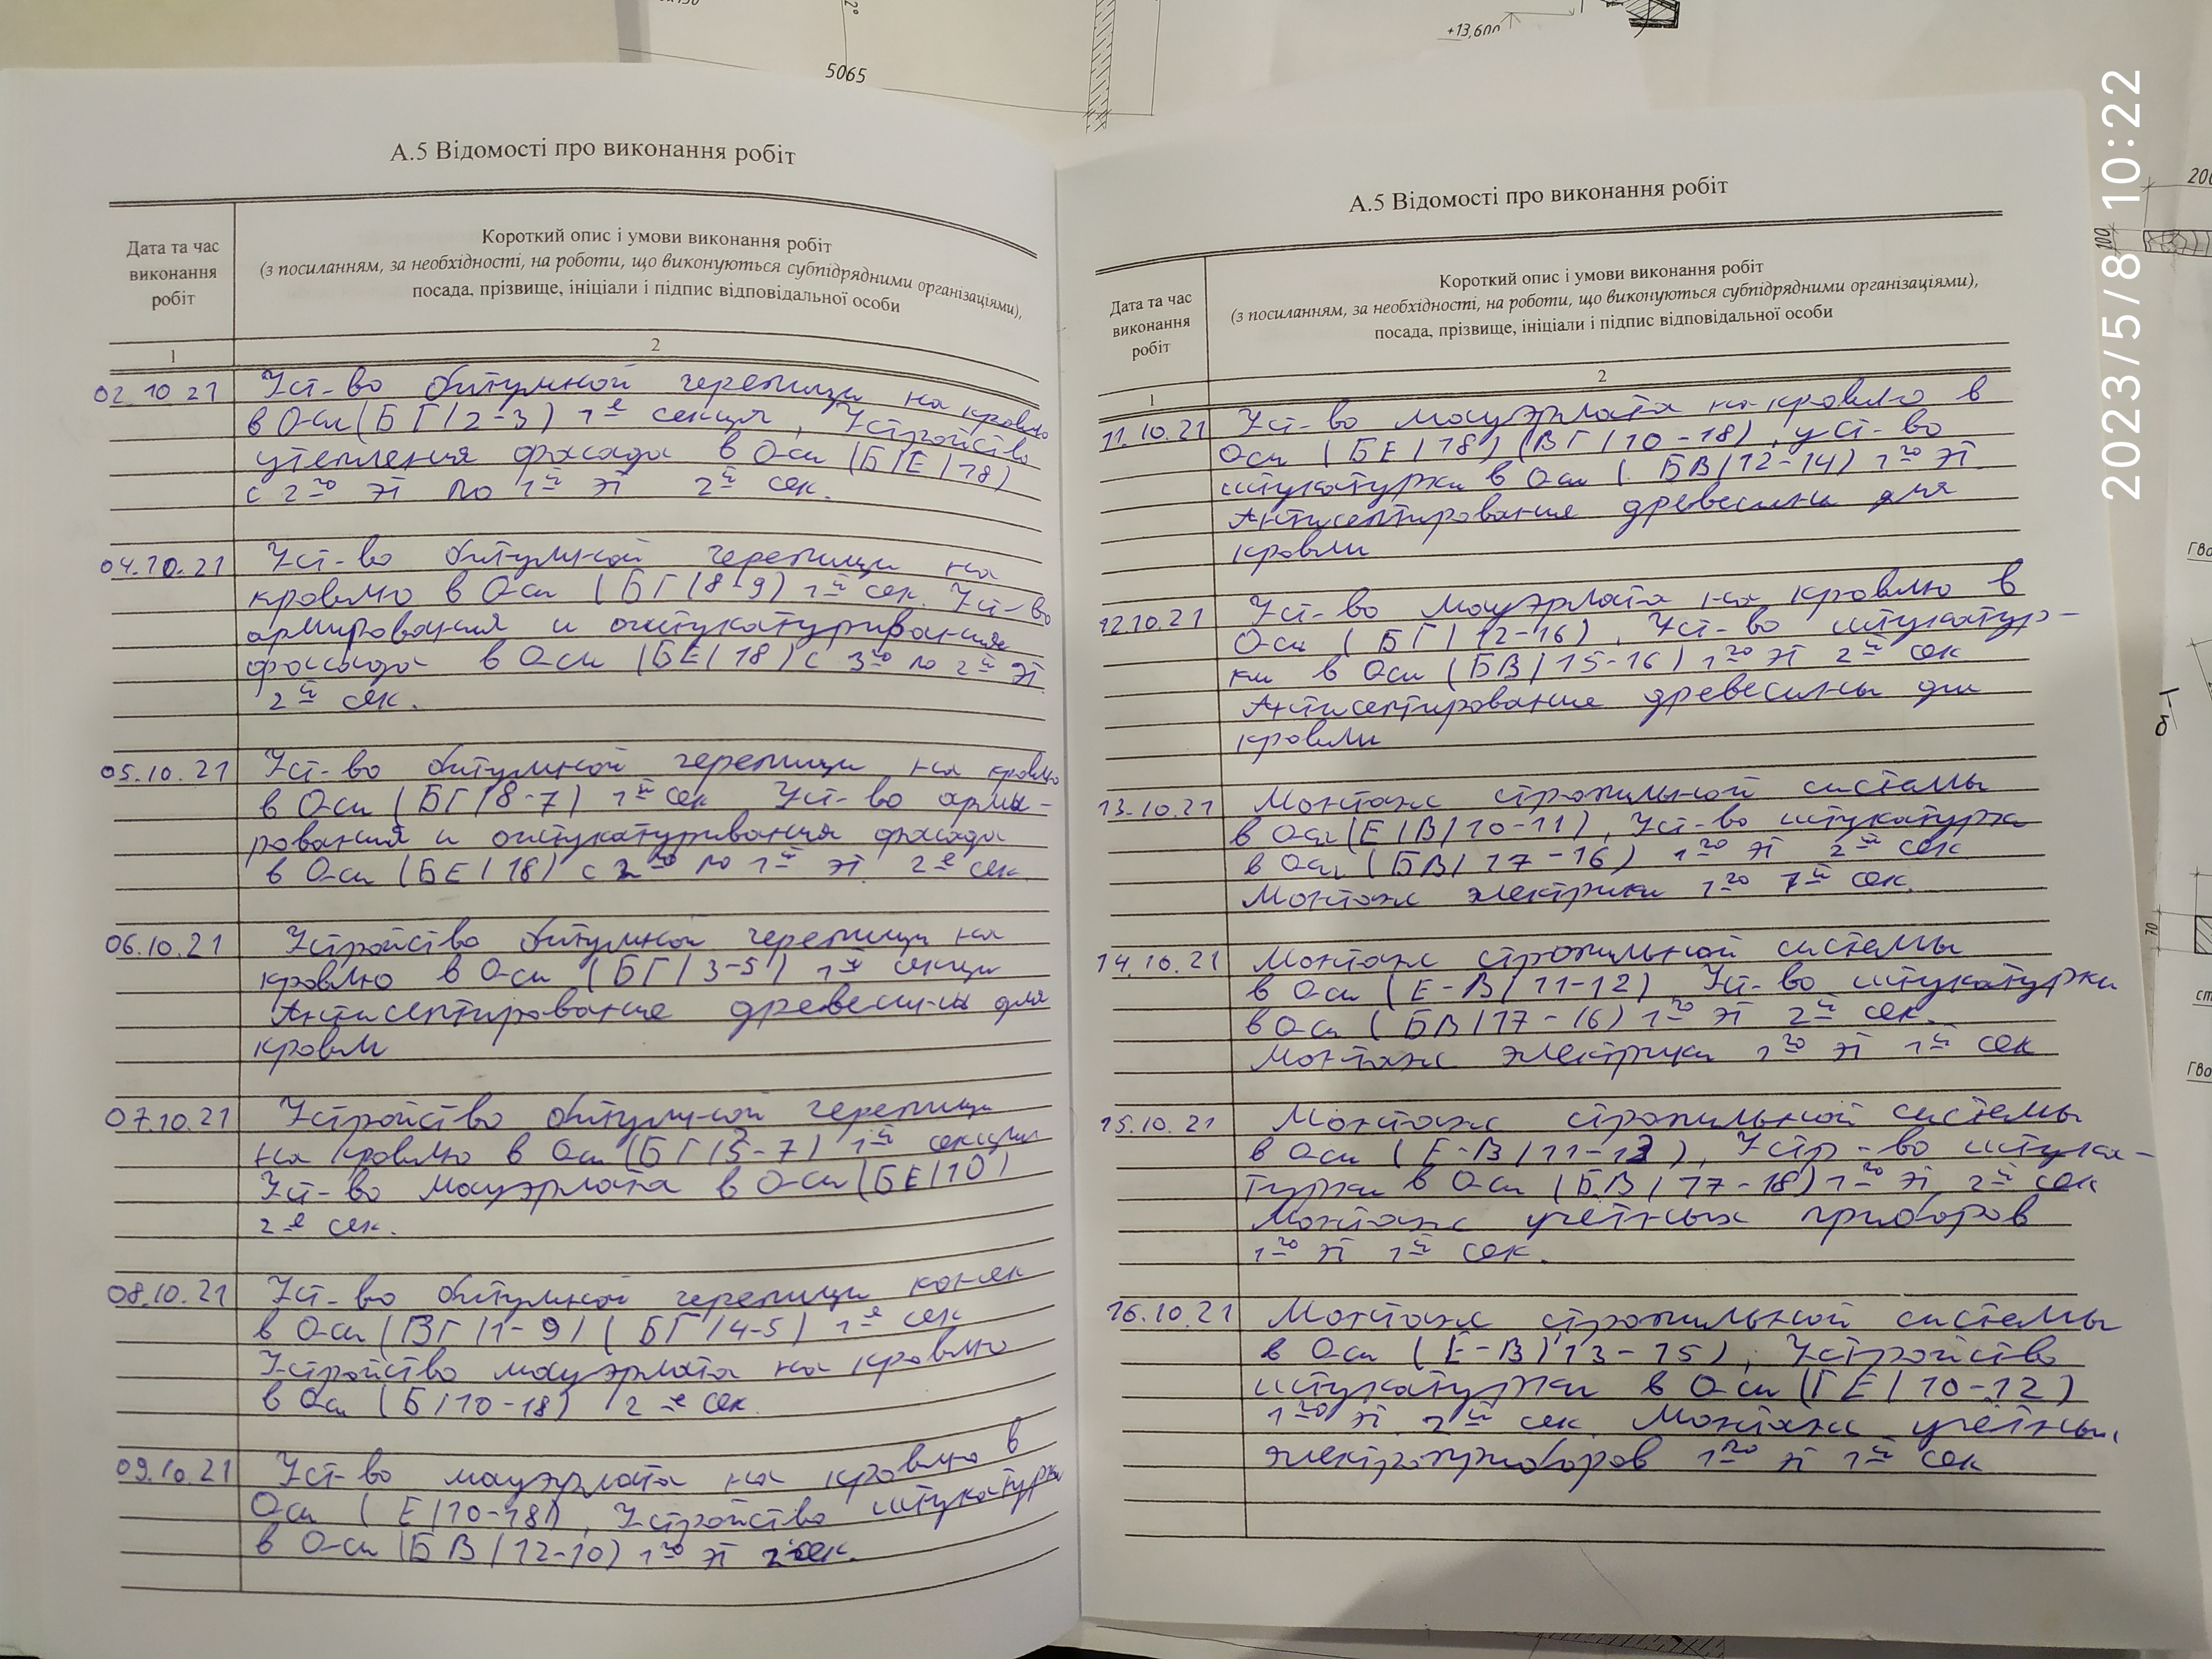 5065
+13,600
2023/5/8 10:22
А.5 Відомості про виконання робіт
Дата та час
виконання
робіт
Короткий опис і умови виконання робіт
(з посиланням, за необхідності, на роботи, що виконуються субпідрядними організаціями),
посада, прізвище, ініціали і підпис відповідальної особи
1
2
02.10 21 Уст-во битумной черепици на кровлю
в Оси (БГ/2-3) 1й секция, Устройство
утепления фасада в Оси (Б/Е/18)
с 2го эт по 1й эт 2й сек.
04.10.21 Уст-во битумной черепици на
кровлю в Оси (БГ/8-9) 1й сек. Уст-во
армирования и оштукатуривания
фасада в Оси (БЕ/18) с 3го по 2й эт
2й сек.
05.10.21 Уст-во битумной черепици на кровлю
в Оси (БГ/8-7) 1й сек Уст-во арми-
рования и оштукатуривания фасада
в Оси (БЕ/18) с 2го по 1й эт. 2й сек.
06.10.21 Устройство битумной черепици на
кровлю в Оси (БГ/3-5) 1й секции
Антисептирование древесины для
кровли
07.10.21 Устройство битумной черепици
на кровлю в Оси (БГ/5-7) 1й секции
Уст-во мауэрлата в Оси (БЕ/10)
2й сек.
08.10.21 Уст-во битумной черепици конек
в Оси (ВГ/1-9) (БГ/4-5) 1й сек
Устройство мауэрлата на кровлю
в Оси (Б/10-18) 2й сек.
09.10.21 Уст-во мауэрлата на кровлю в
Оси (Е/10-18), Устройство штукатурки
в Оси (БВ/12-10) 1го эт 2 сек.
А.5 Відомості про виконання робіт
Дата та час
виконання
робіт
Короткий опис і умови виконання робіт
(з посиланням, за необхідності, на роботи, що виконуються субпідрядними організаціями),
посада, прізвище, ініціали і підпис відповідальної особи
1
2
11.10.21 Уст-во мауэрлата на кровлю в
Оси (БЕ/18) (ВГ/10-18), уст-во
штукатурки в Оси (БВ/12-14) 1го эт.
Антисептирование древесины для
кровли
12.10.21 Уст-во мауэрлата на кровлю в
Оси (БГ/12-16), Уст-во штукатур-
ки в Оси (БВ/15-16) 1го эт 2й сек
Антисептирование древесины для
кровли
13.10.21 Монтаж стропильной системы
в Оси (Е/В/10-11), Уст-во штукатурки
в Оси (БВ/17-16) 1го эт 2й сек
Монтаж электрики 1го 1й сек.
14.10.21 Монтаж стропильной системы
в Оси (Е-В/11-12) Уст-во штукатурки
в Оси (БВ/17-16) 1го эт 2й сек.
Монтаж электрики 1го эт 1й сек
15.10.21 Монтаж стропильной системы
в Оси (Е-В/11-13), Устр-во штука-
турки в Оси (БВ/17-18) 1го эт 2й сек
Монтаж учётных приборов
1го эт 1й сек.
16.10.21 Монтаж стропильной системы
в Оси (Е-В/13-15), Устройство
штукатурки в Оси (ГЕ/10-12)
1го эт. 2й сек. Монтаж учётных
электроприборов 1го эт 1й сек
100
70